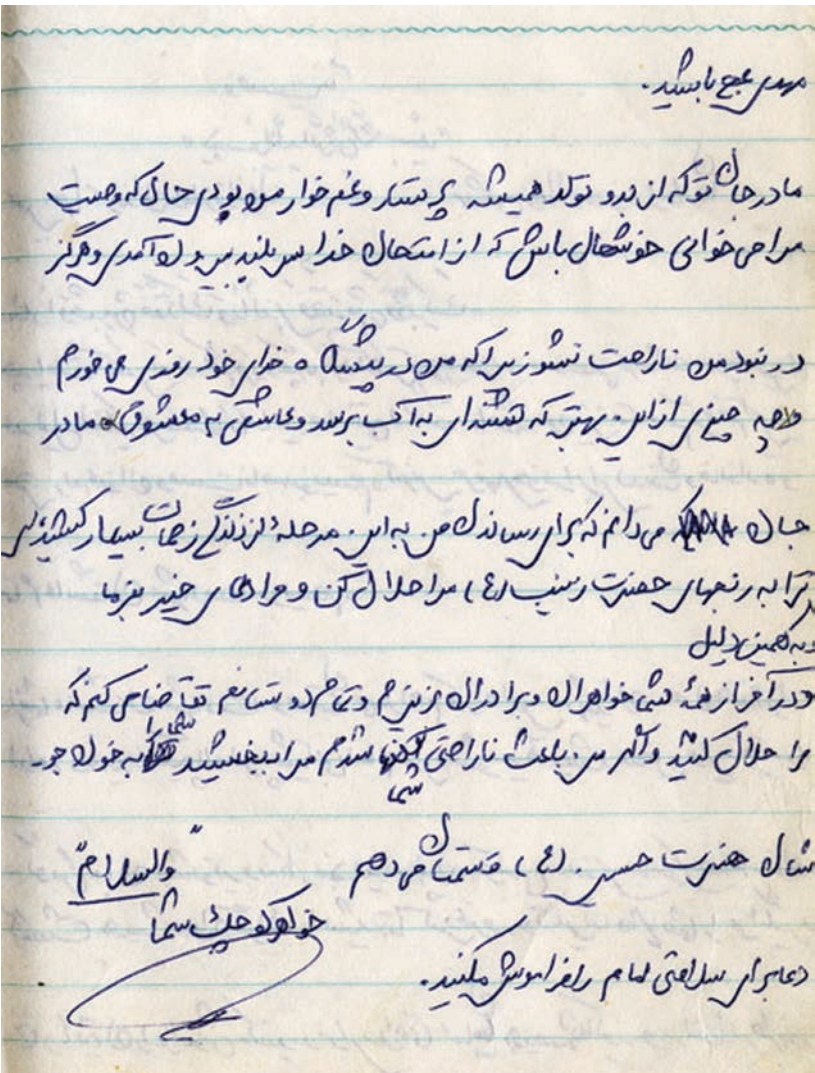 مهدی عج باشید.
مادر جان تو که از بدو تولد همیشه پرستار و غم خوار من بودی حال که وصیت
مرا می خوانی خوشحال باش که از امتحان خدا سر بلند بیرون آمدی و هرگز
در نبود من ناراحت نشو زیرا که من در پیشگاه خدای خود روزی می خورم
و چه چیزی از این بهتر که تشنه ای به آب برسد و عاشقی به معشوق مادر
جان می دانم که برای رساندن من به این مرحله از زندگی زحمات بسیار کشیدی
ترا به رنجهای حضرت زینب (ع) مرا حلال کن و مرا دعای خیر بنما
و به همین دلیل
و در آخر از همهٔ شما خواهران و برادران عزیزم و تمام دوستانم تقاضا می کنم که
مرا حلال کنید و اگر من باعث ناراحتی شما شدم مرا ببخشید شما را به خون جو-
شان حضرت حسین (ع) قسمتان می دهم
"والسلام"
خواهر کوچک شما
دعا برای سلامتی امام را فراموش مکنید.